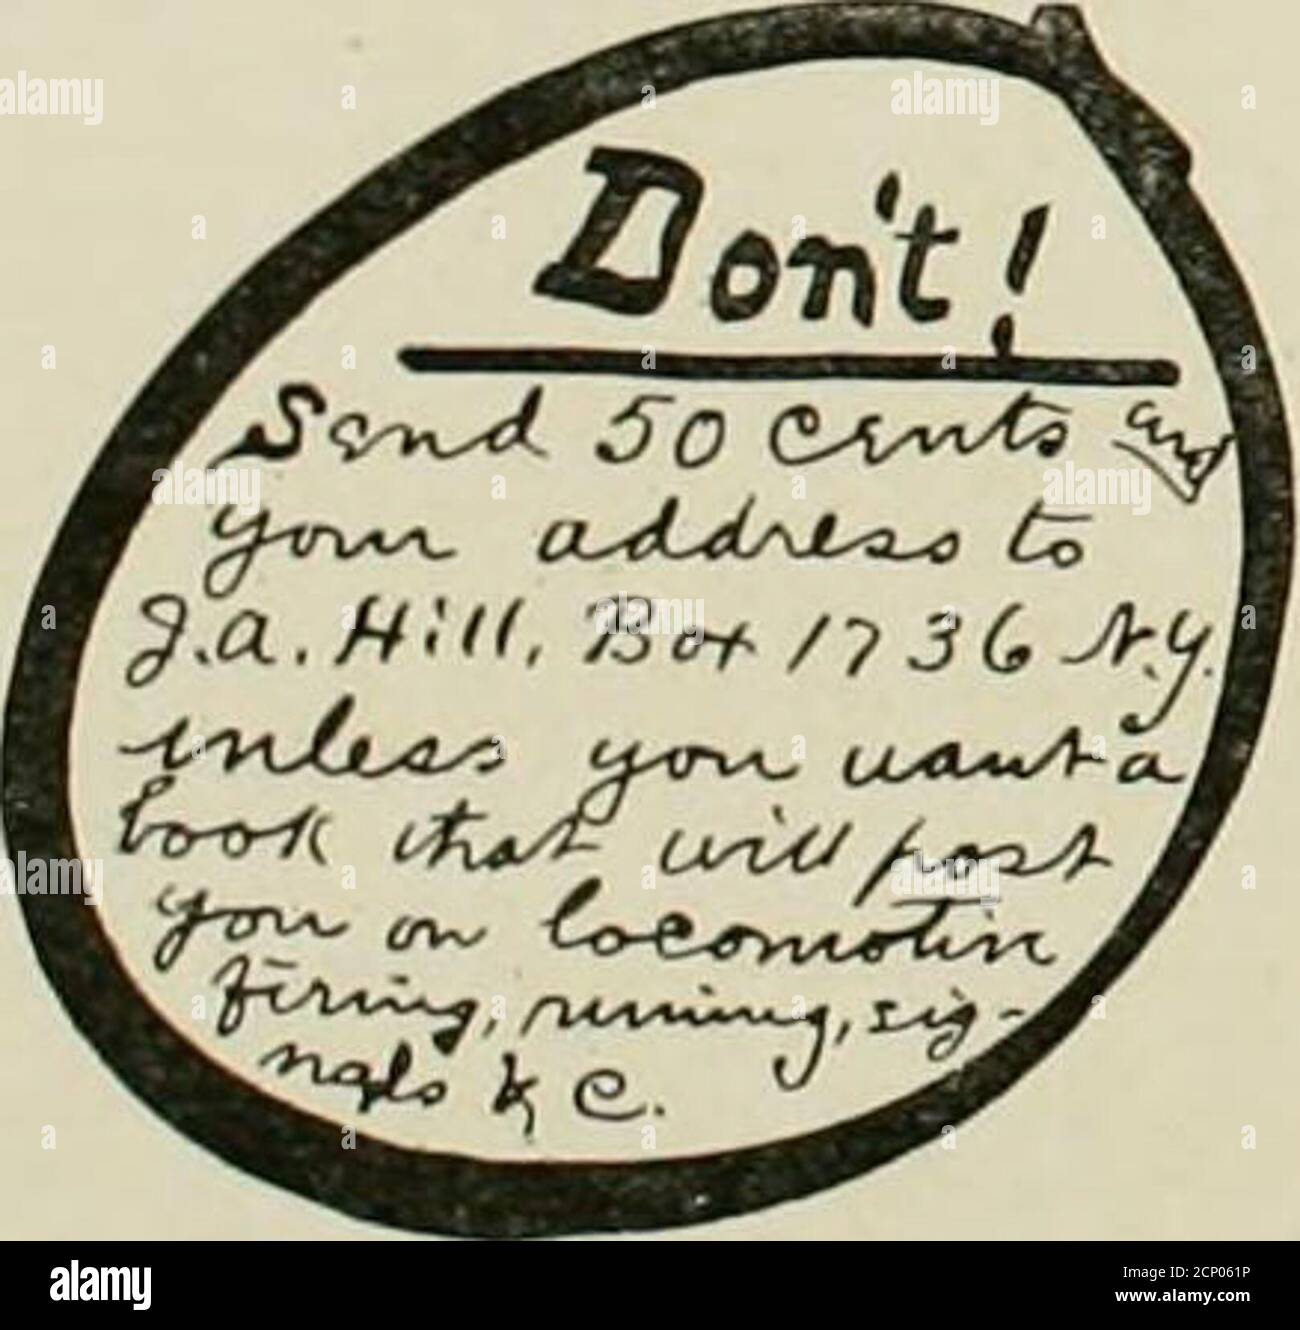 Don't!
Send 50 Cents and
your address to
J.A. Hill, Box 1736 N.Y.
unless you want a
book that will post
you on locomotive
firing, running, sig-
nals & C.
alamy
Image ID: 2CP061P
www.alamy.com